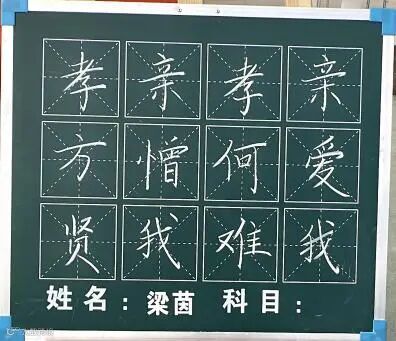 孝亲孝亲
方憎何爱
贤我难我
姓名：梁茵 科目：